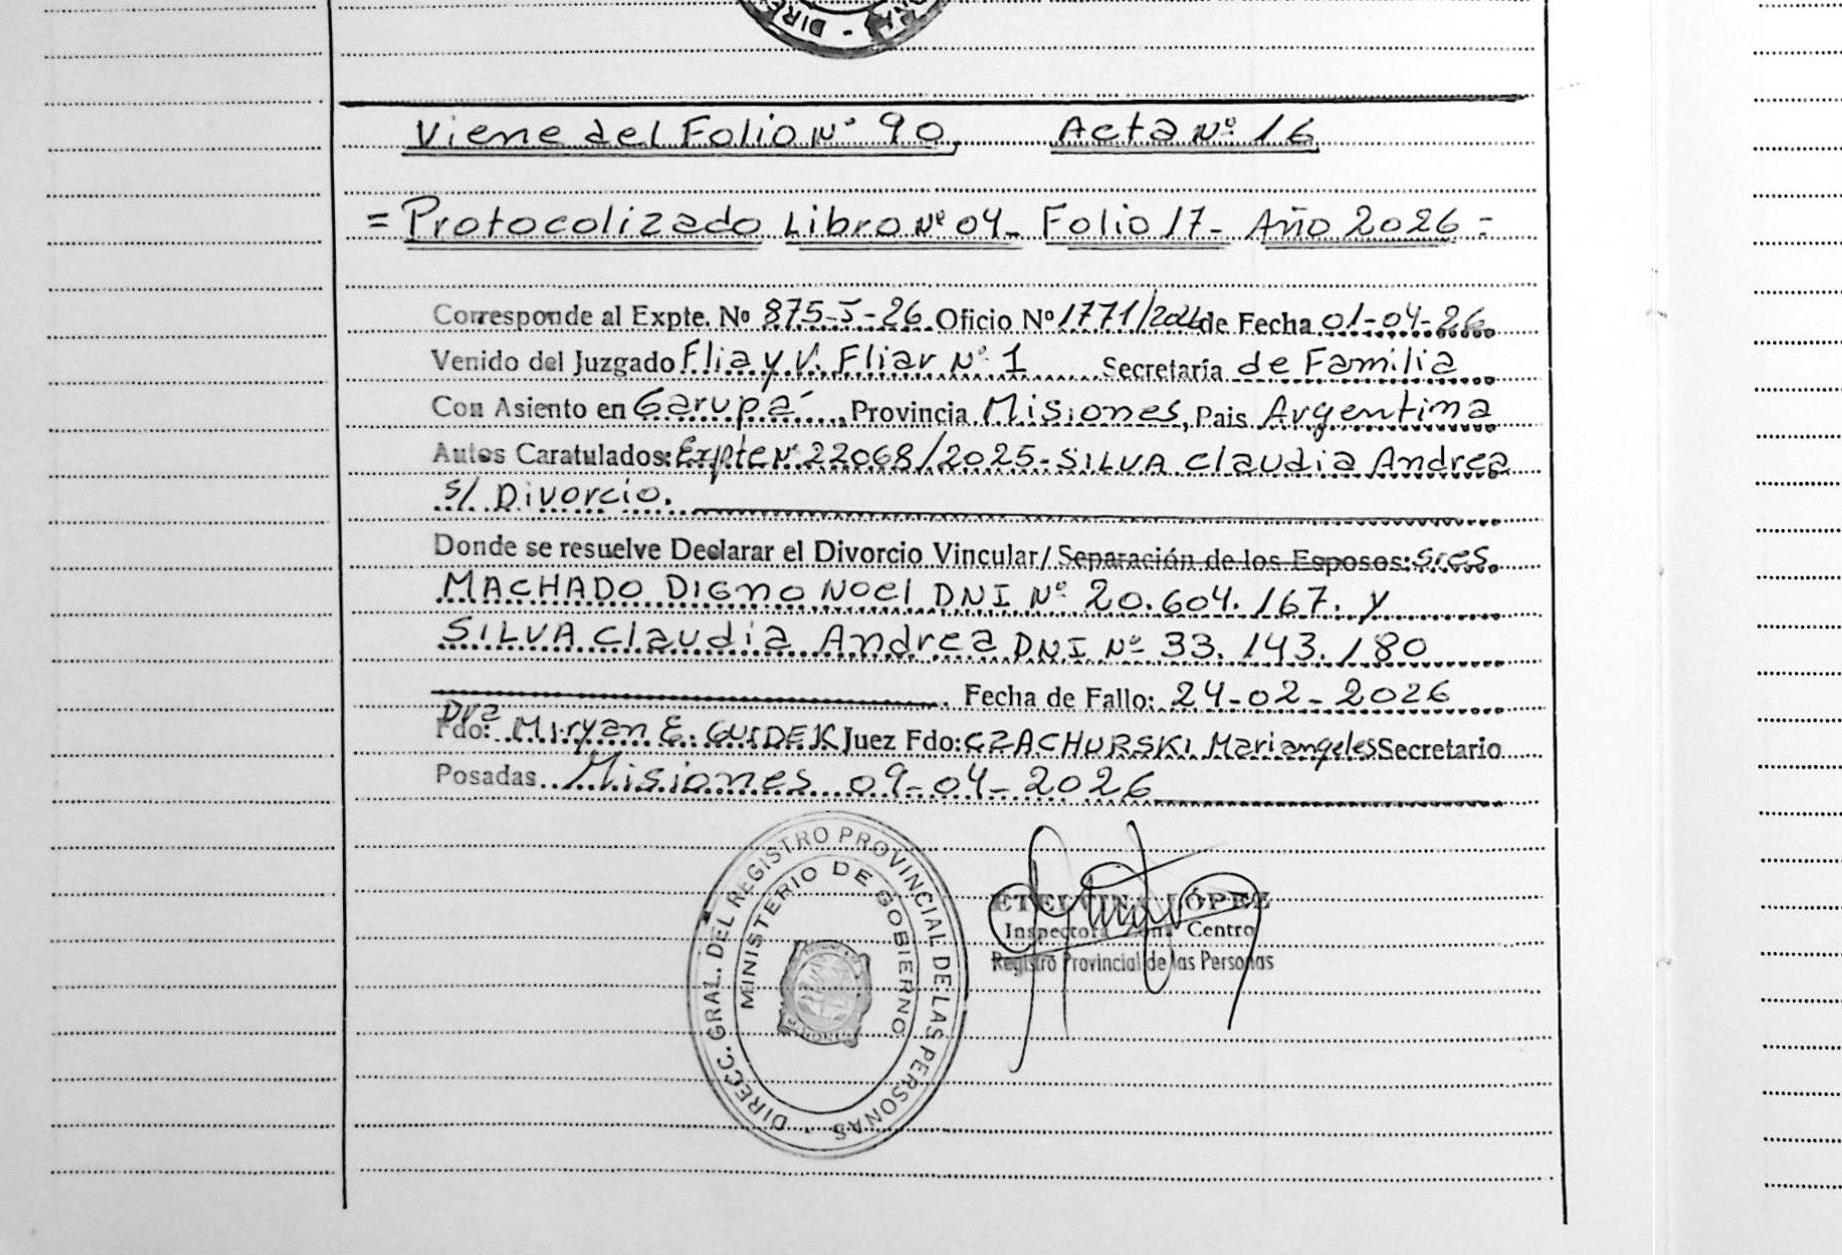 Viene del Folio Nº 90, Acta Nº 16
= Protocolizado Libro Nº 04- Folio 17- Año 2026 =
Corresponde al Expte. Nº 875-J-26 Oficio Nº 1771/2026 de Fecha 01-04-26
Venido del Juzgado Flia y V. Fliar Nº 1 Secretaría de Familia
Con Asiento en Garupá, Provincia Misiones, Pais Argentina
Autos Caratulados: Expte Nº 22068/2025- SILVA Claudia Andrea
s/ Divorcio.
Donde se resuelve Declarar el Divorcio Vincular/ Separación de los Esposos: sres.
MACHADO DIGNO Noel DNI Nº 20.604.167. y
SILVA Claudia Andrea DNI Nº 33.143.180
Fecha de Fallo: 24-02-2026
Dra
Fdo: Miryan E. GUIDEK Juez Fdo: CZACHURSKI Mariangeles Secretario
Posadas Misiones 09-04-2026
DIRECC. GRAL. DEL REGISTRO PROVINCIAL DE LAS PERSONAS
MINISTERIO DE GOBIERNO
ETELVINA LÓPEZ
Inspectora Zona Centro
Registro Provincial de las Personas